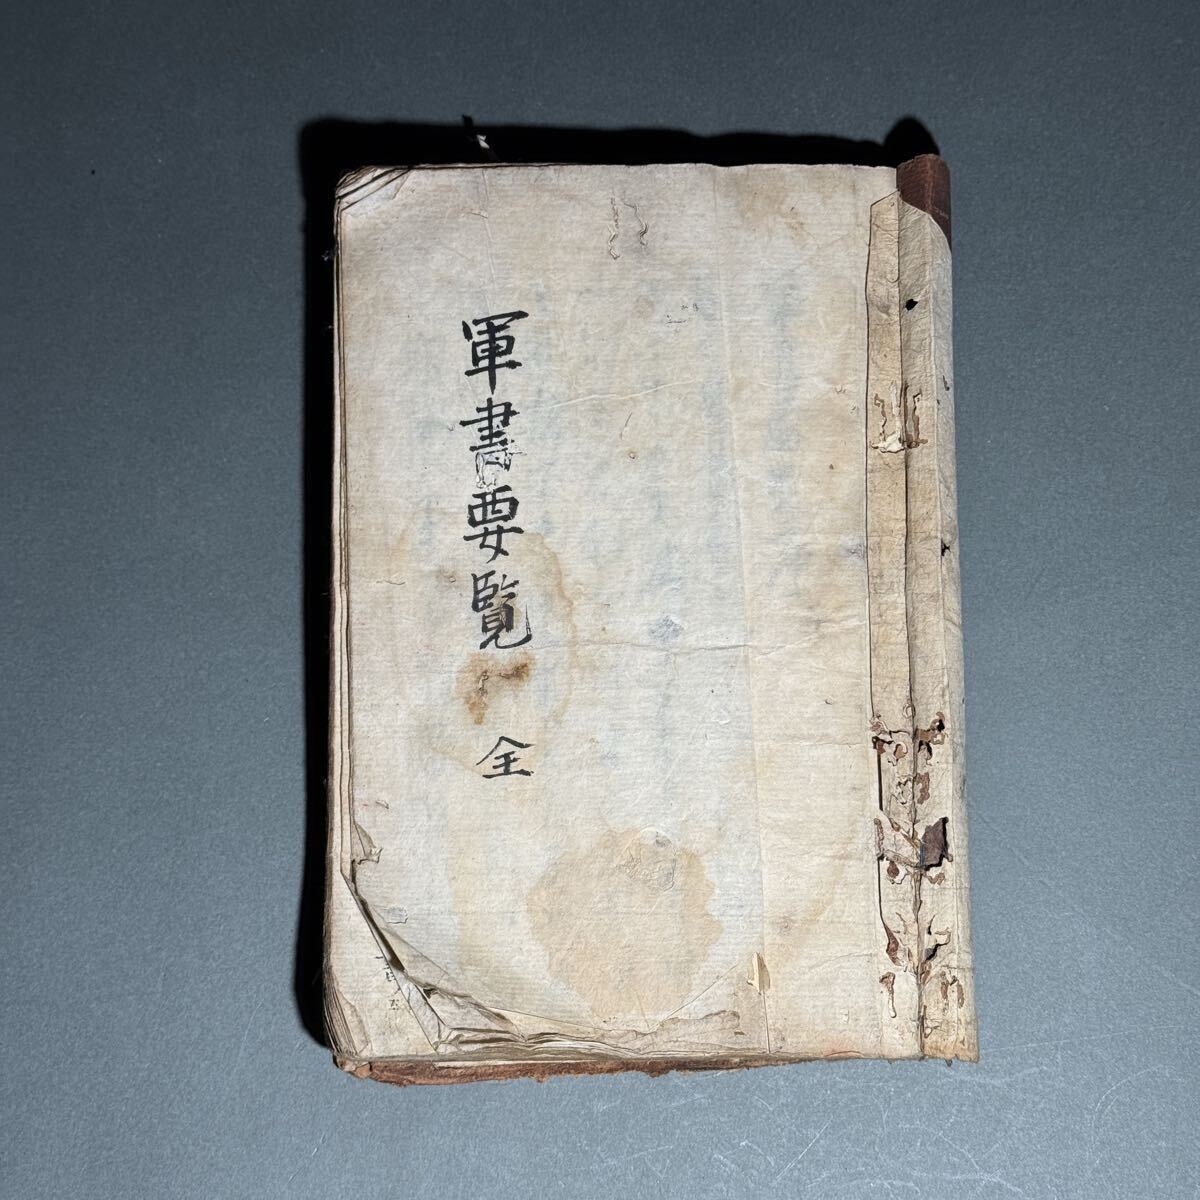 軍書要覧 全